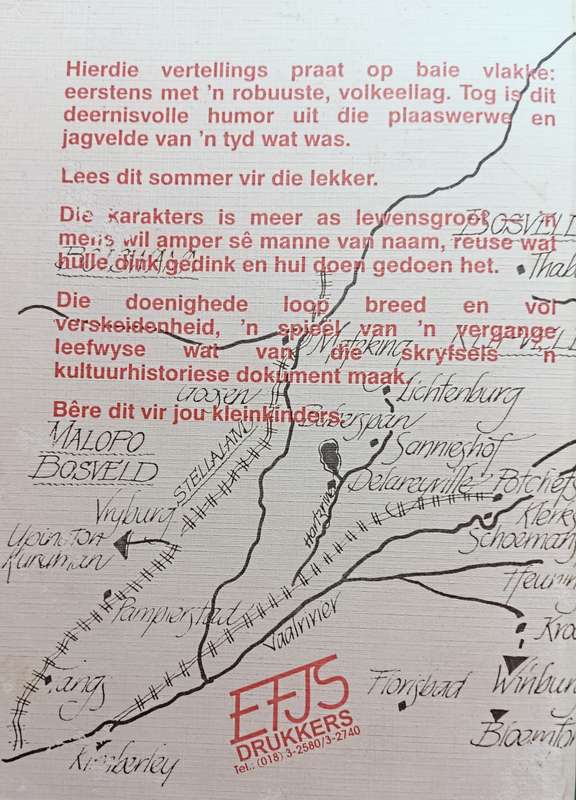 Hierdie vertellings praat op baie vlakke:
eerstens met 'n robuuste, volkeellag. Tog is dit
deernisvolle humor uit die plaaswerwe en
jagvelde van 'n tyd wat was.
Lees dit sommer vir die lekker.
Die karakters is meer as lewensgroot – 'n
mens wil amper sê manne van naam, reuse wat
hulle dink gedink en hul doen gedoen het.
Die doenighede loop breed en vol
verskeidenheid, 'n spieël van 'n vergange
leefwyse wat van die skryfsels 'n
kultuurhistoriese dokument maak.
Bêre dit vir jou kleinkinders.
BOSVELD
Thab
Mafeking
Goosen
Lichtenburg
MALOPO
BOSVELD
STELLALAND
Sannieshof
Delareyville
Potchefs
Vryburg
Hartzrivier
Klerks
Schoemans
Upington
Kuruman
Heuning
Pampierstad
Vaalrivier
Kroo
Taungs
Florisbad
Winburg
Bloemfon
Kimberley
EFJS
DRUKKERS
Tel.: (018) 3-2580/3-2740